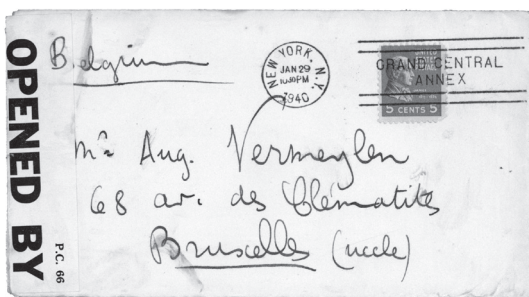 OPENED BY
P.C. 66
Belgium
NEW YORK, N.Y.
JAN 29
1940
GRAND CENTRAL
ANNEX
5 CENTS 5
Mr Aug. Vermeylen
68 av. des Clématites
Bruxelles (uccle)